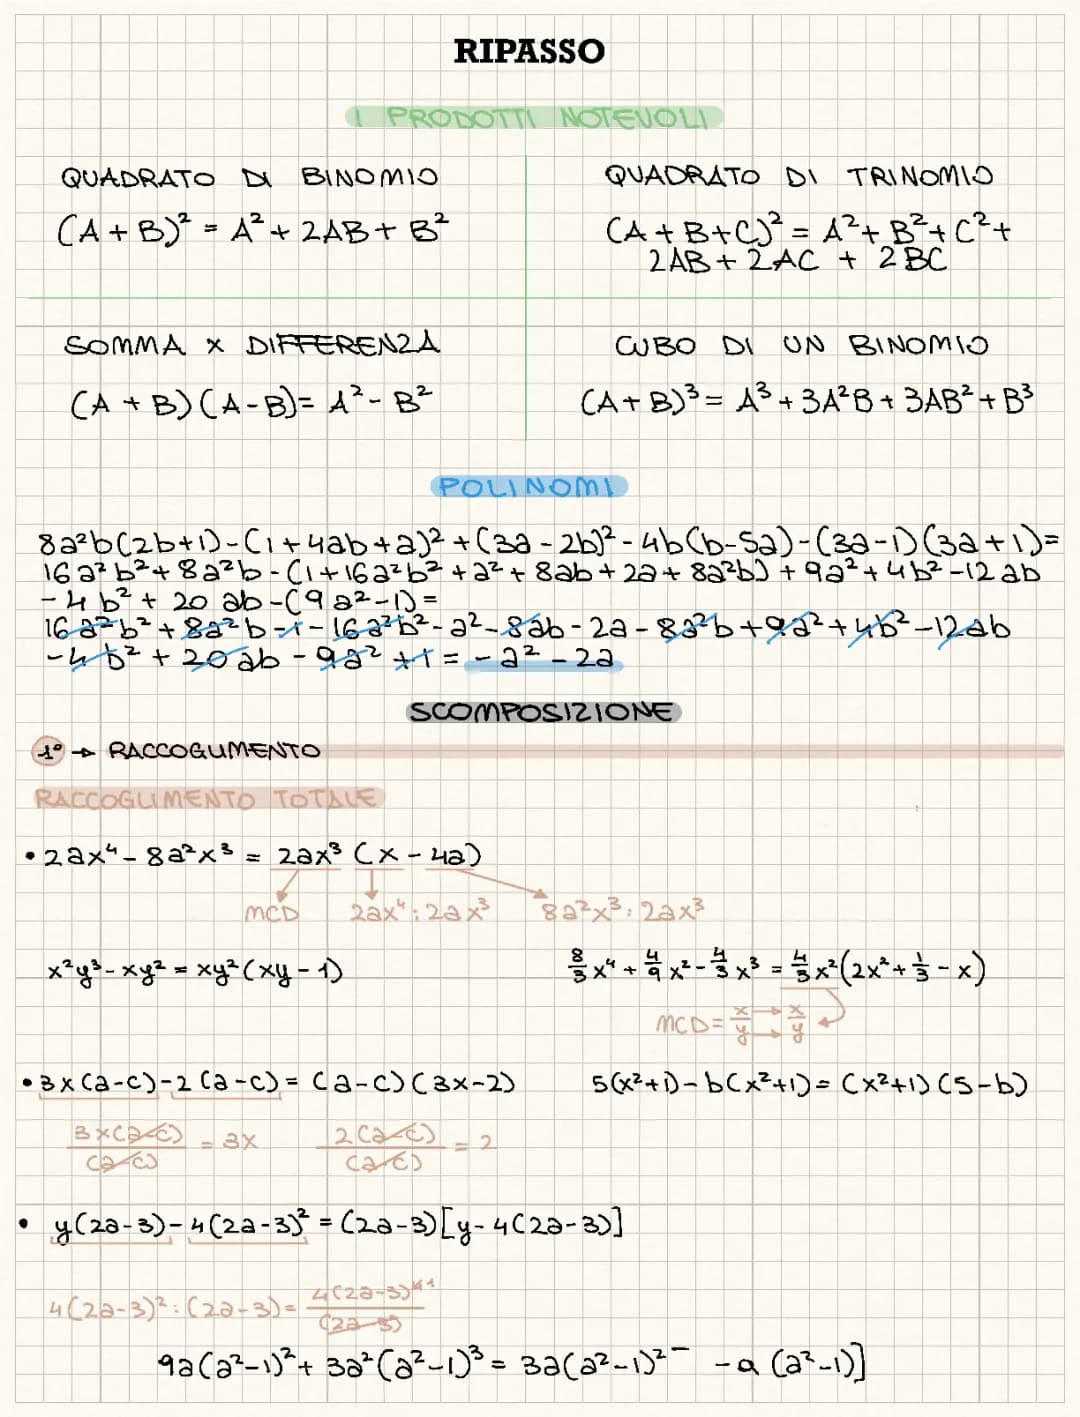 RIPASSO
I PRODOTTI NOTEVOLI
QUADRATO DI BINOMIO
(A + B)² = A² + 2AB + B²
QUADRATO DI TRINOMIO
(A + B + C)² = A² + B² + C² +
2AB + 2AC + 2BC
SOMMA x DIFFERENZA
(A + B)(A - B) = A² - B²
CUBO DI UN BINOMIO
(A + B)³ = A³ + 3A²B + 3AB² + B³
POLINOMI
8a²b(2b+1) - (1 + 4ab + a)² + (3a - 2b)² - 4b(b - 5a) - (3a - 1)(3a + 1) =
16a²b² + 8a²b - (1 + 16a²b² + a² + 8ab + 2a + 8a²b) + 9a² + 4b² - 12ab
- 4b² + 20ab - (9a² - 1) =
16a²b² + 8a²b - 1 - 16a²b² - a² - 8ab - 2a - 8a²b + 9a² + 4b² - 12ab
- 4b² + 20ab - 9a² + 1 = - a² - 2a
SCOMPOSIZIONE
1° → RACCOGLIMENTO
RACCOGLIMENTO TOTALE
• 2ax⁴ - 8a²x³ = 2ax³ (x - 4a)
MCD 2ax⁴ : 2ax³ 8a²x³ : 2ax³
x²y³ - xy² = xy²(xy - 1)
8/3 x⁴ + 4/9 x² - 4/3 x³ = 4/3 x²(2x² + 1/3 - x)
MCD = x/y → x/y
• 3x(a-c) - 2(a-c) = (a-c)(3x-2)
5(x²+1) - b(x²+1) = (x²+1)(5-b)
3x(a-c)/(a-c) = 3x 2(a-c)/(a-c) = 2
• y(2a-3) - 4(2a-3)² = (2a-3)[y - 4(2a-3)]
4(2a-3)² : (2a-3) = 4(2a-3)/(2a-3)
9a(a²-1)² + 3a²(a²-1)³ = 3a(a²-1)² - a (a²-1)]